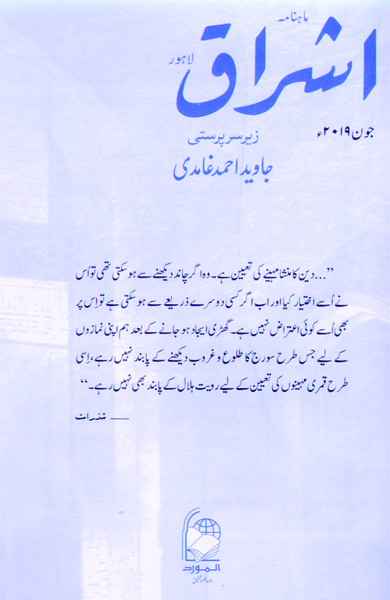 ماہنامہ
اشراق
لاہور
جون ۲۰۱۹ء
زیر سرپرستی
جاوید احمد غامدی
”...دین کا منشا مہینے کی تعیین ہے۔ وہ اگر چاند دیکھنے سے ہو سکتی تھی تو اُس
نے اُسے اختیار کیا اور اب اگر کسی دوسرے ذریعے سے ہو سکتی ہے تو اِس پر
بھی اُسے کوئی اعتراض نہیں ہے۔ گھڑی ایجاد ہو جانے کے بعد ہم اپنی نمازوں
کے لیے جس طرح سورج کا طلوع و غروب دیکھنے کے پابند نہیں رہے، اِسی
طرح قمری مہینوں کی تعیین کے لیے رویت ہلال کے پابند بھی نہیں رہے۔“
— شذرات
المورد